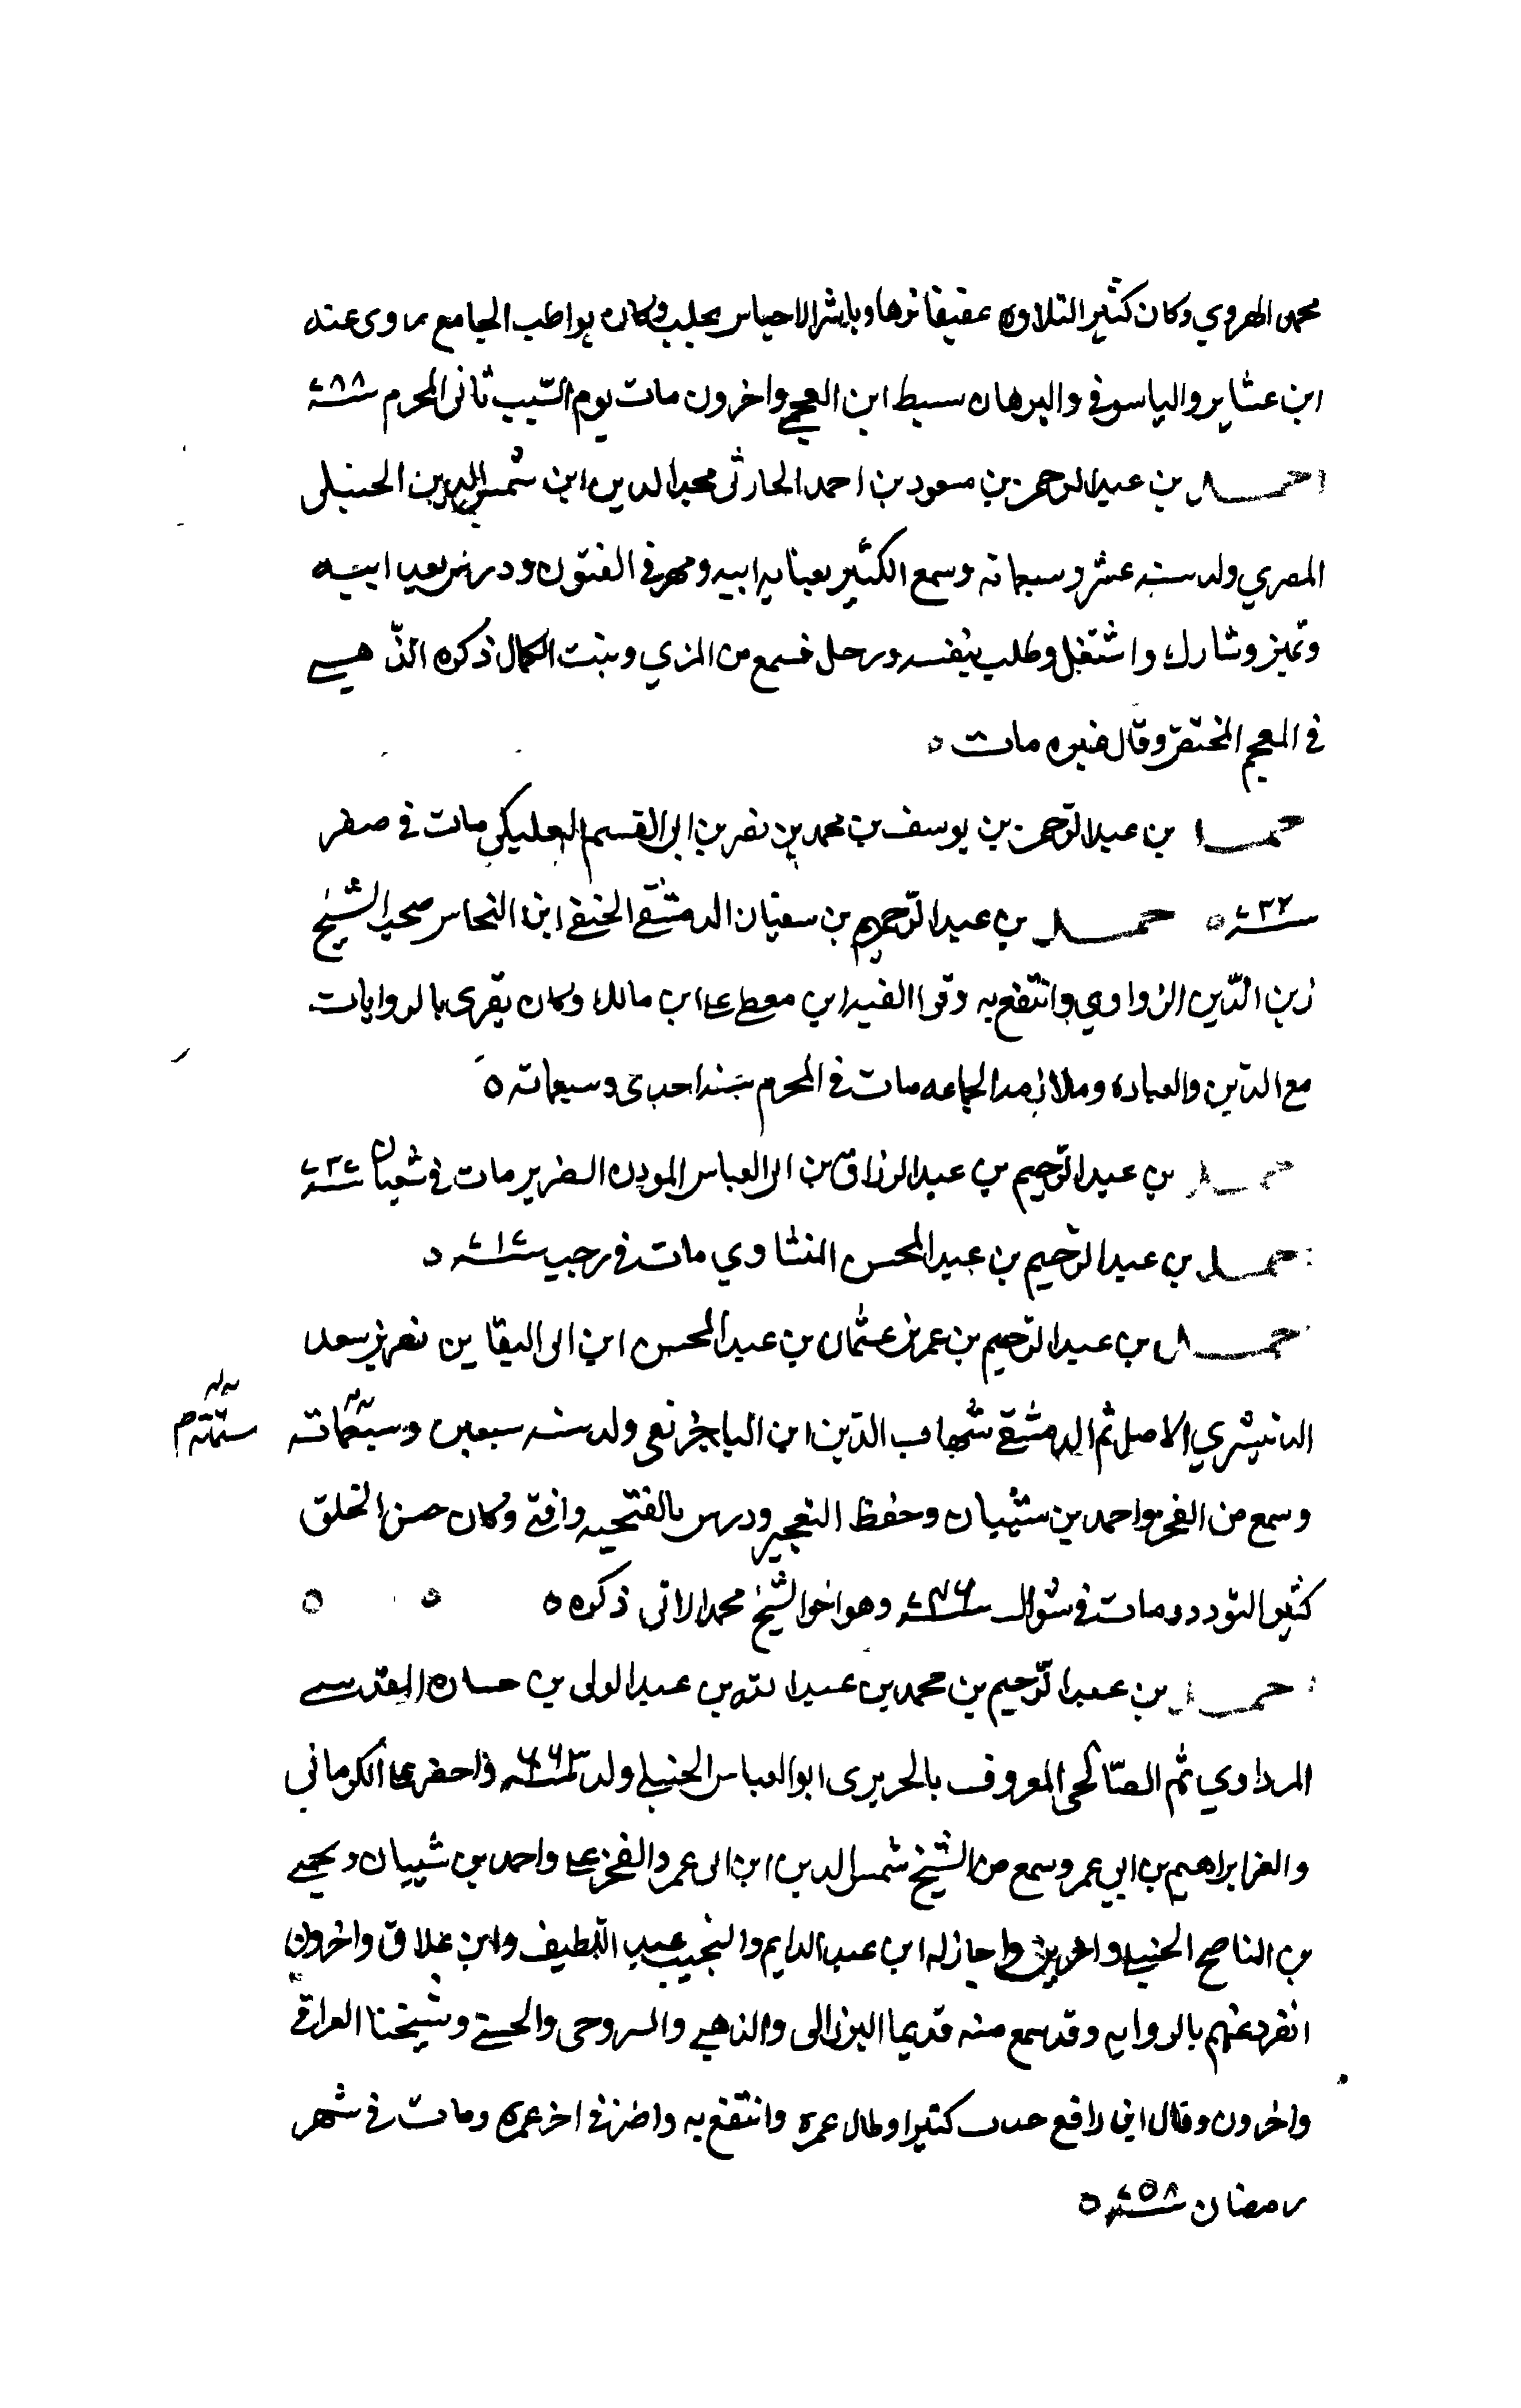 محمد الهروي وكان كثير التلاوه عفيفا نزها وباشر الاحباس بحلب وكان يواظب الجامع روى عنه
ابن عشاير والياسوفي والبرهان سبط ابن العجمي واخرون مات يوم السبت ثانى المحرم سنة ٧٨٨
احمد بن عبد الرحمن بن مسعود بن احمد الحارثى مجد الدين ابن شمس الدين الحنبلى
المصري ولد سنه عشر وسبعماته وسمع الكثير بعنايه ابيه ومهر فى الفنون ودرس بعد ابيه
وتميز وشارك واشتغل وطلب بنفسه ورحل فسمع من المزي وبنت الكمال ذكره الذهبي
فى المعجم المختص وقال غيره مات ٥
حمد بن عبد الرحمن بن يوسف بن محمد بن نصر بن ابى القسم البعلبكي مات فى صفر
سنة ٧٣٢ ٥ حمد بن عبد الرحيم بن سفيان الدمشقي الحنفي ابن النحاس صحب الشيخ
زين الدين الزواوي وانتفع به وقرا الفيه ابن معطي على ابن مالك وكان يقرى بالروايات
مع الدين والعباده وملازمه الجماعه مات فى المحرم سنه احدى وسبعماته ٥
حمد بن عبد الرحيم بن عبد الرزاق بن ابى العباس المودن الضرير مات فى شعبان سنة ٧٣٧
حمد بن عبد الرحيم بن عبد المحسن النشاوي مات فى رجب سنة ٧١٧ ٥
حمد بن عبد الرحيم بن عمر بن عثمان بن عبد المحسن ابن ابى البقا بن نصر بن سعد
الدنيسري الاصل ثم الدمشقي شهاب الدين ابن الباجربقى ولد سنه سبعين وسبعماته
ستماته م
وسمع من الفخر واحمد بن شيبان وحفظ التعجيز ودرس بالفتحيه وافتى وكان حسن الخلق
كثير التودد ومات فى شوال سنة ٧٢٦ وهو اخو الشيخ محمد الاتى ذكره ٥ ٥ ٥
حمد بن عبد الرحيم بن محمد بن عبد الله بن عبد الولى بن حسان المقدسي
المرداوي ثم الصالحى المعروف بالحريرى ابو العباس الحنبلي ولد سنة ٦٦٣ واحضر على الكرماني
والعز ابراهيم بن ابي عمر وسمع من الشيخ شمس الدين ابن ابى عمر والفخر على واحمد بن شيبان ويحيي
بن الناصح الحنبلي واخرين واجاز له ابن عبد الدايم والنجيب عبد اللطيف وابن علاق واخرون
انفرد عنهم بالروايه وقد سمع منه قديما البرزالى والذهبي والسروجى والحسيني وشيخنا العراقي
واخرون وقال ابن رافع حدث كثيرا وطال عمره وانتفع به واضر في اخر عمره ومات فى شهر
رمضان سنة ٧٥٨ ٥